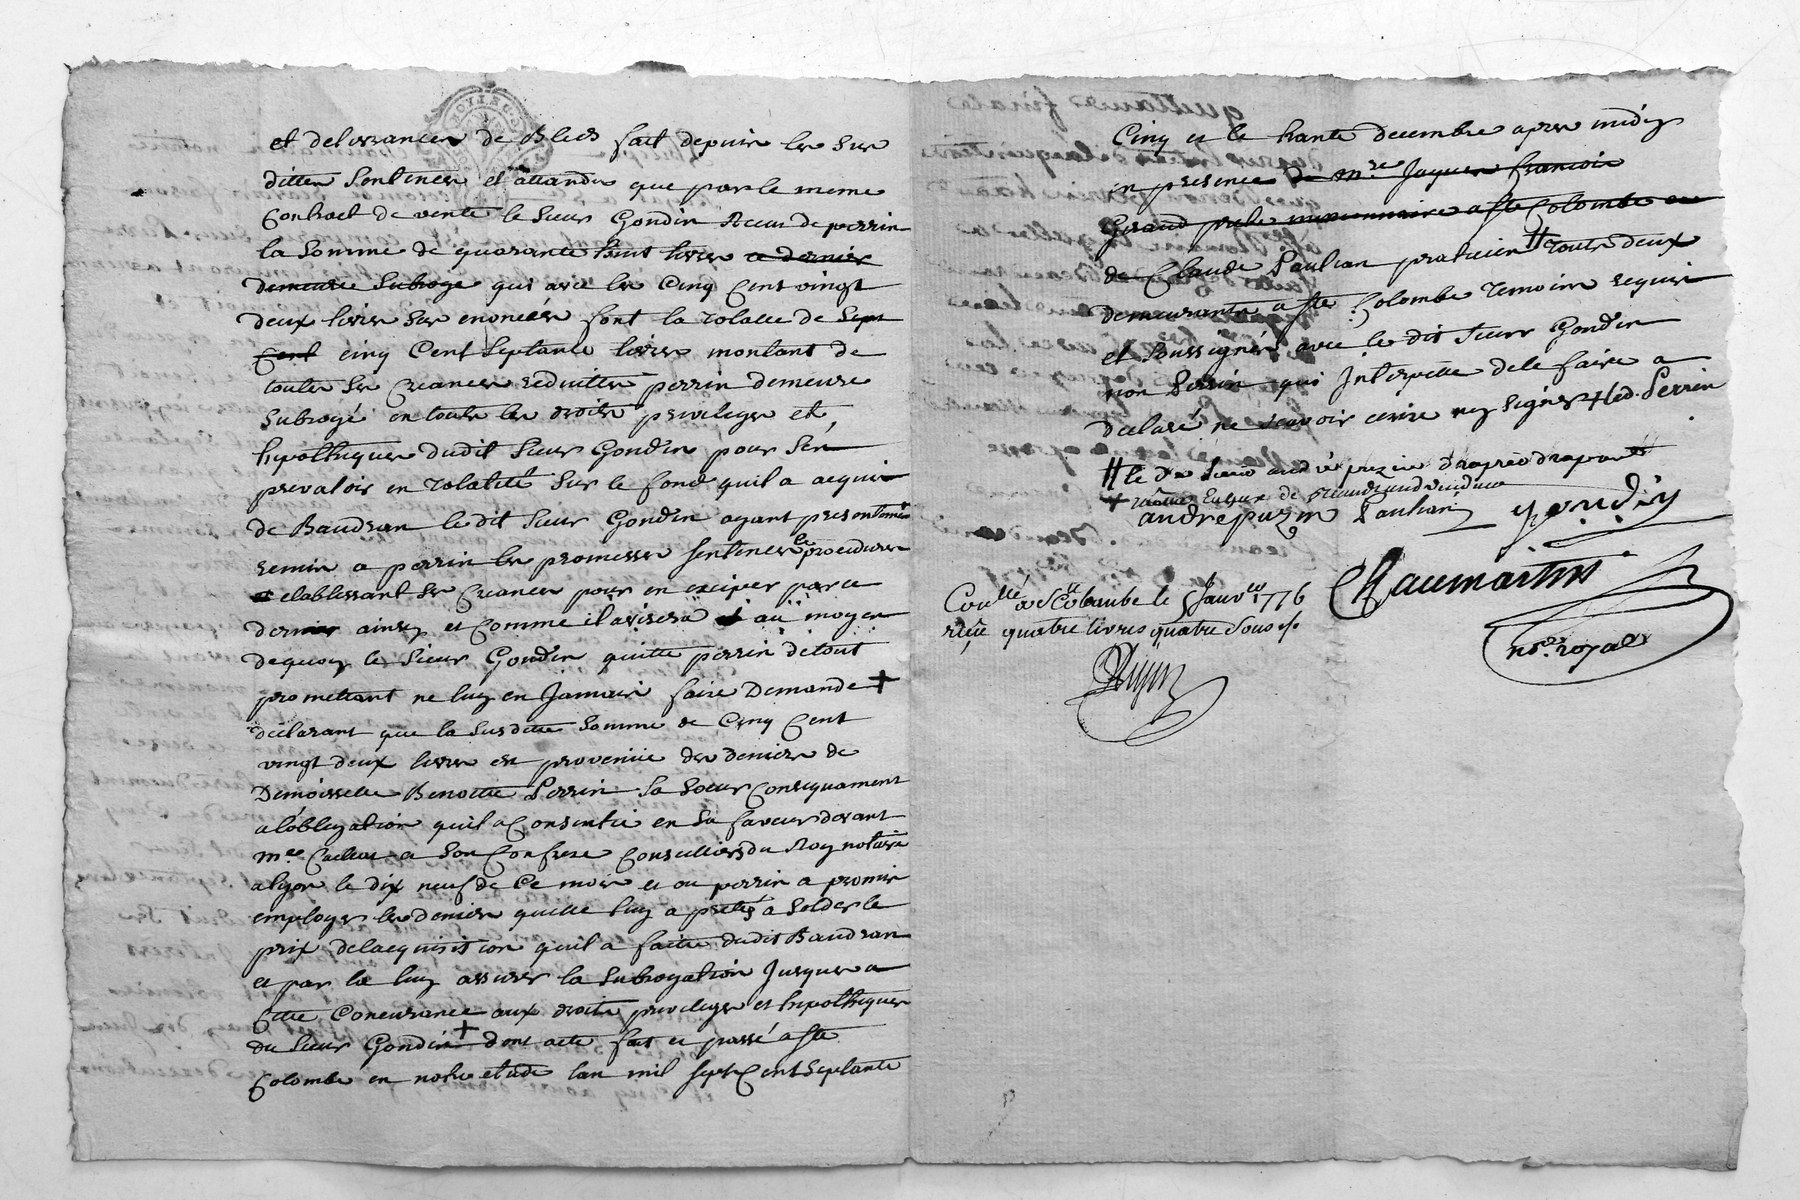 et delivrances de Bleds fait depuis les sus
dittes sentences et attandu que par le meme
Contract de vente le sieur Gondin Recus de perrin
la somme de quarante huit livres ce dernier
demeure subrogé qui avec les Cinq Cent vingt
deux livres sus enoncées font la totalle de Sept
Cent cinq Cent Septante livres montant de
toutes ses creances reduittes perrin demeure
subrogé en toutes les droits privileges et
hipothiques dudit sieur Gondin pour s'en
prevaloir en totalité sur le fond quil a acquis
de Baudran le dit sieur Gondin ayant presentement
remis a perrin les promesses sentences et procedures
etablissant ses creances pour en exciper par ce
dernier ainsy et comme il avisera au moyen
dequoy le sieur Gondin quitte perrin de tout
promettant ne luy en Jamais faire Demande +
declarant que la susditte somme de Cinq Cent
vingt deux livres est provenüe des deniers de
Demoisselle Benoitte Perrin sa soeur consequament
a l'obligation quil a Consentie en sa faveur devant
me & son Confrere Conseillers du Roy notaire
a lyon le dix neuf de Ce mois et ou perrin a promis
employer les deniers quelle luy a pretés a solder le
prix delacquisition quil a faitte dudit Baudran
et par la luy assurer la subrogation Jusques a
Cette Concurrance aux droits privileges et hipothiques
du sieur Gondin + dont acte fait et passé a Ste
Colombe en notre etude lan mil sept Cent Septante
Cinq et le trante decembre apres midy
en presence de mre Jaques francois
Giraud pretre missionnaire a Ste Colombe et
de Claude Paulian praticien # touts deux
demeurants a Ste Colombe temoins requis
et soussignés avec le dit sieur Gondin
non perrin qui Interpellé de le faire a
declaré ne scavoir ecrire ny signer + led. Perrin
# le Sr Sieur andré puzin
+
andre puzin Paulian gondin
Chaumartin
nore royal
Conllé a Ste Colombe le 5 Janver 1776
reçu quatre livres quatre sous